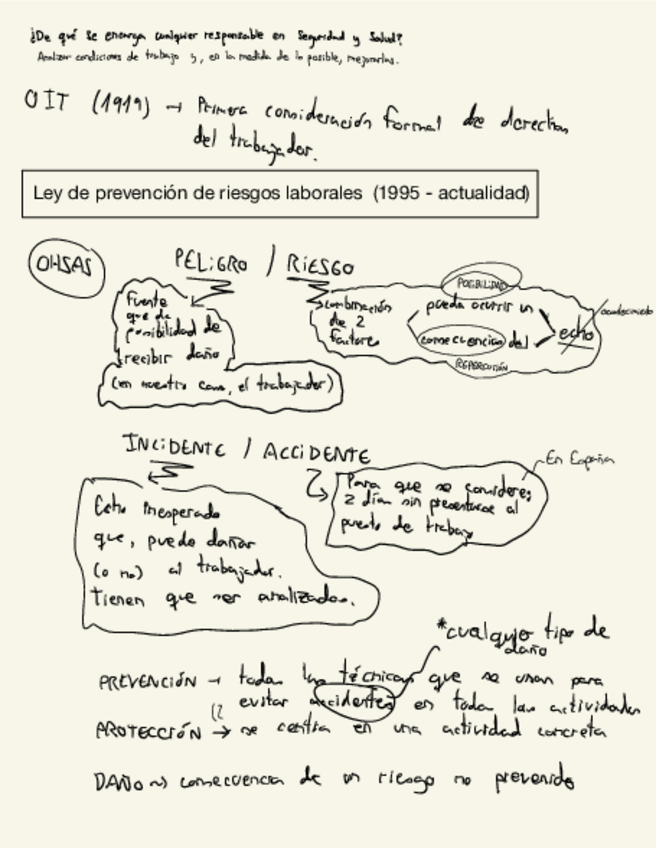 ¿De qué se encarga cualquier responsable en Seguridad y Salud?
Analizar condiciones de trabajo y, en la medida de lo posible, mejorarlas.
OIT (1919) → Primera consideración formal de derechos
del trabajador.
Ley de prevención de riesgos laborales (1995 - actualidad)
OHSAS
PELIGRO / RIESGO
Fuente
que da
posibilidad de
recibir daño
(en nuestro caso, el trabajador)
combinación
de 2
factores
POSIBILIDAD
pueda ocurrir un
consecuencias del
REPERCUSIÓN
echo
acontecimiento
INCIDENTE / ACCIDENTE
Echo inesperado
que, puede dañar
(o no) al trabajador.
Tienen que ser analizados.
En España
Para que se considere:
2 días sin presentarse al
puesto de trabajo
*cualquier tipo de
daño
PREVENCIÓN → todas las técnicas que se usan para
evitar accidentes en todas las actividades
PROTECCIÓN → se centra en una actividad concreta
DAÑO ~> consecuencia de un riesgo no prevenido